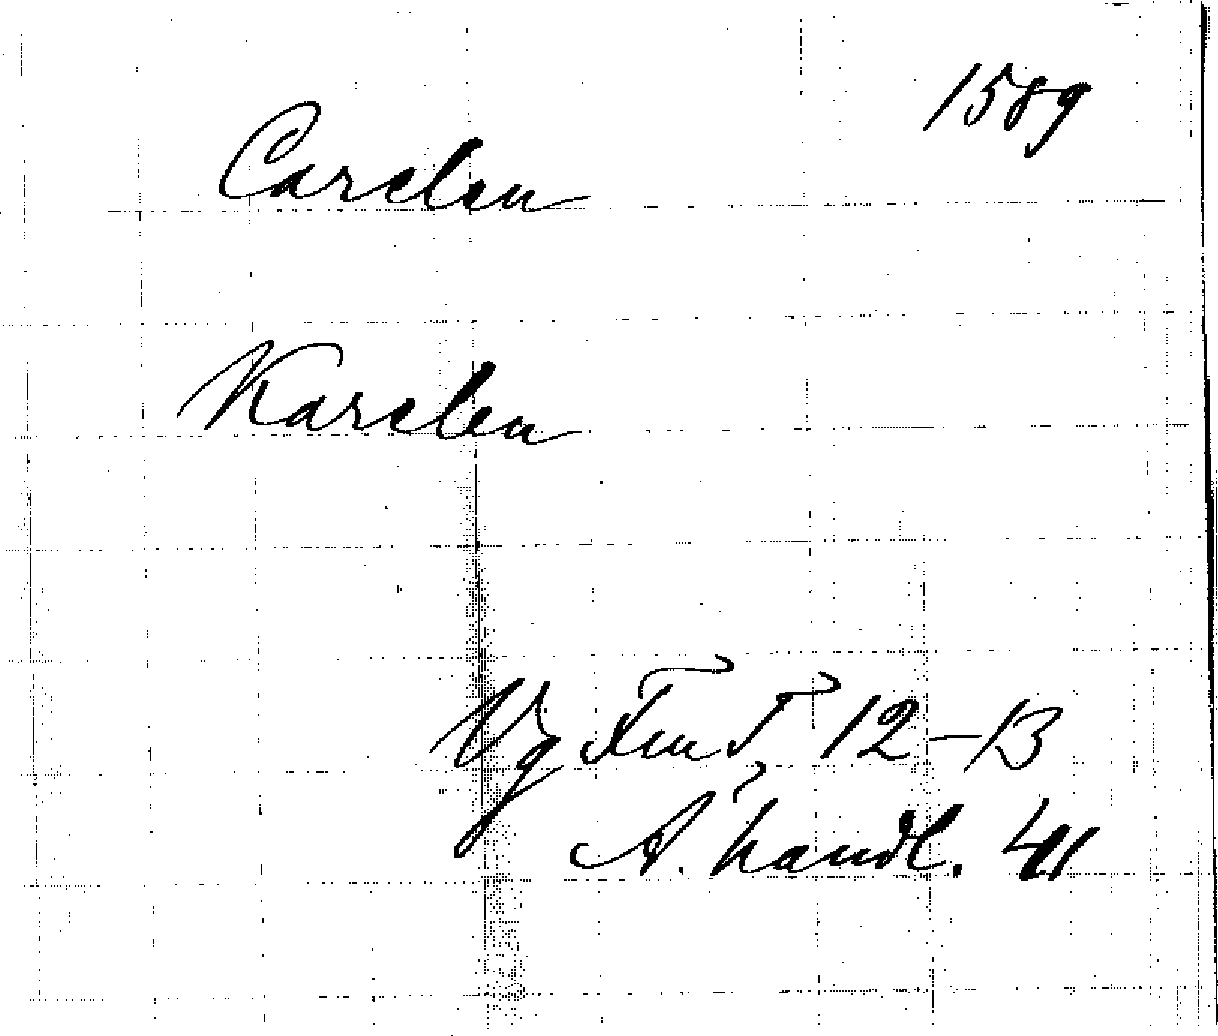 1589
Carelen
Karelen
Vg 12-13
A. handl. 41